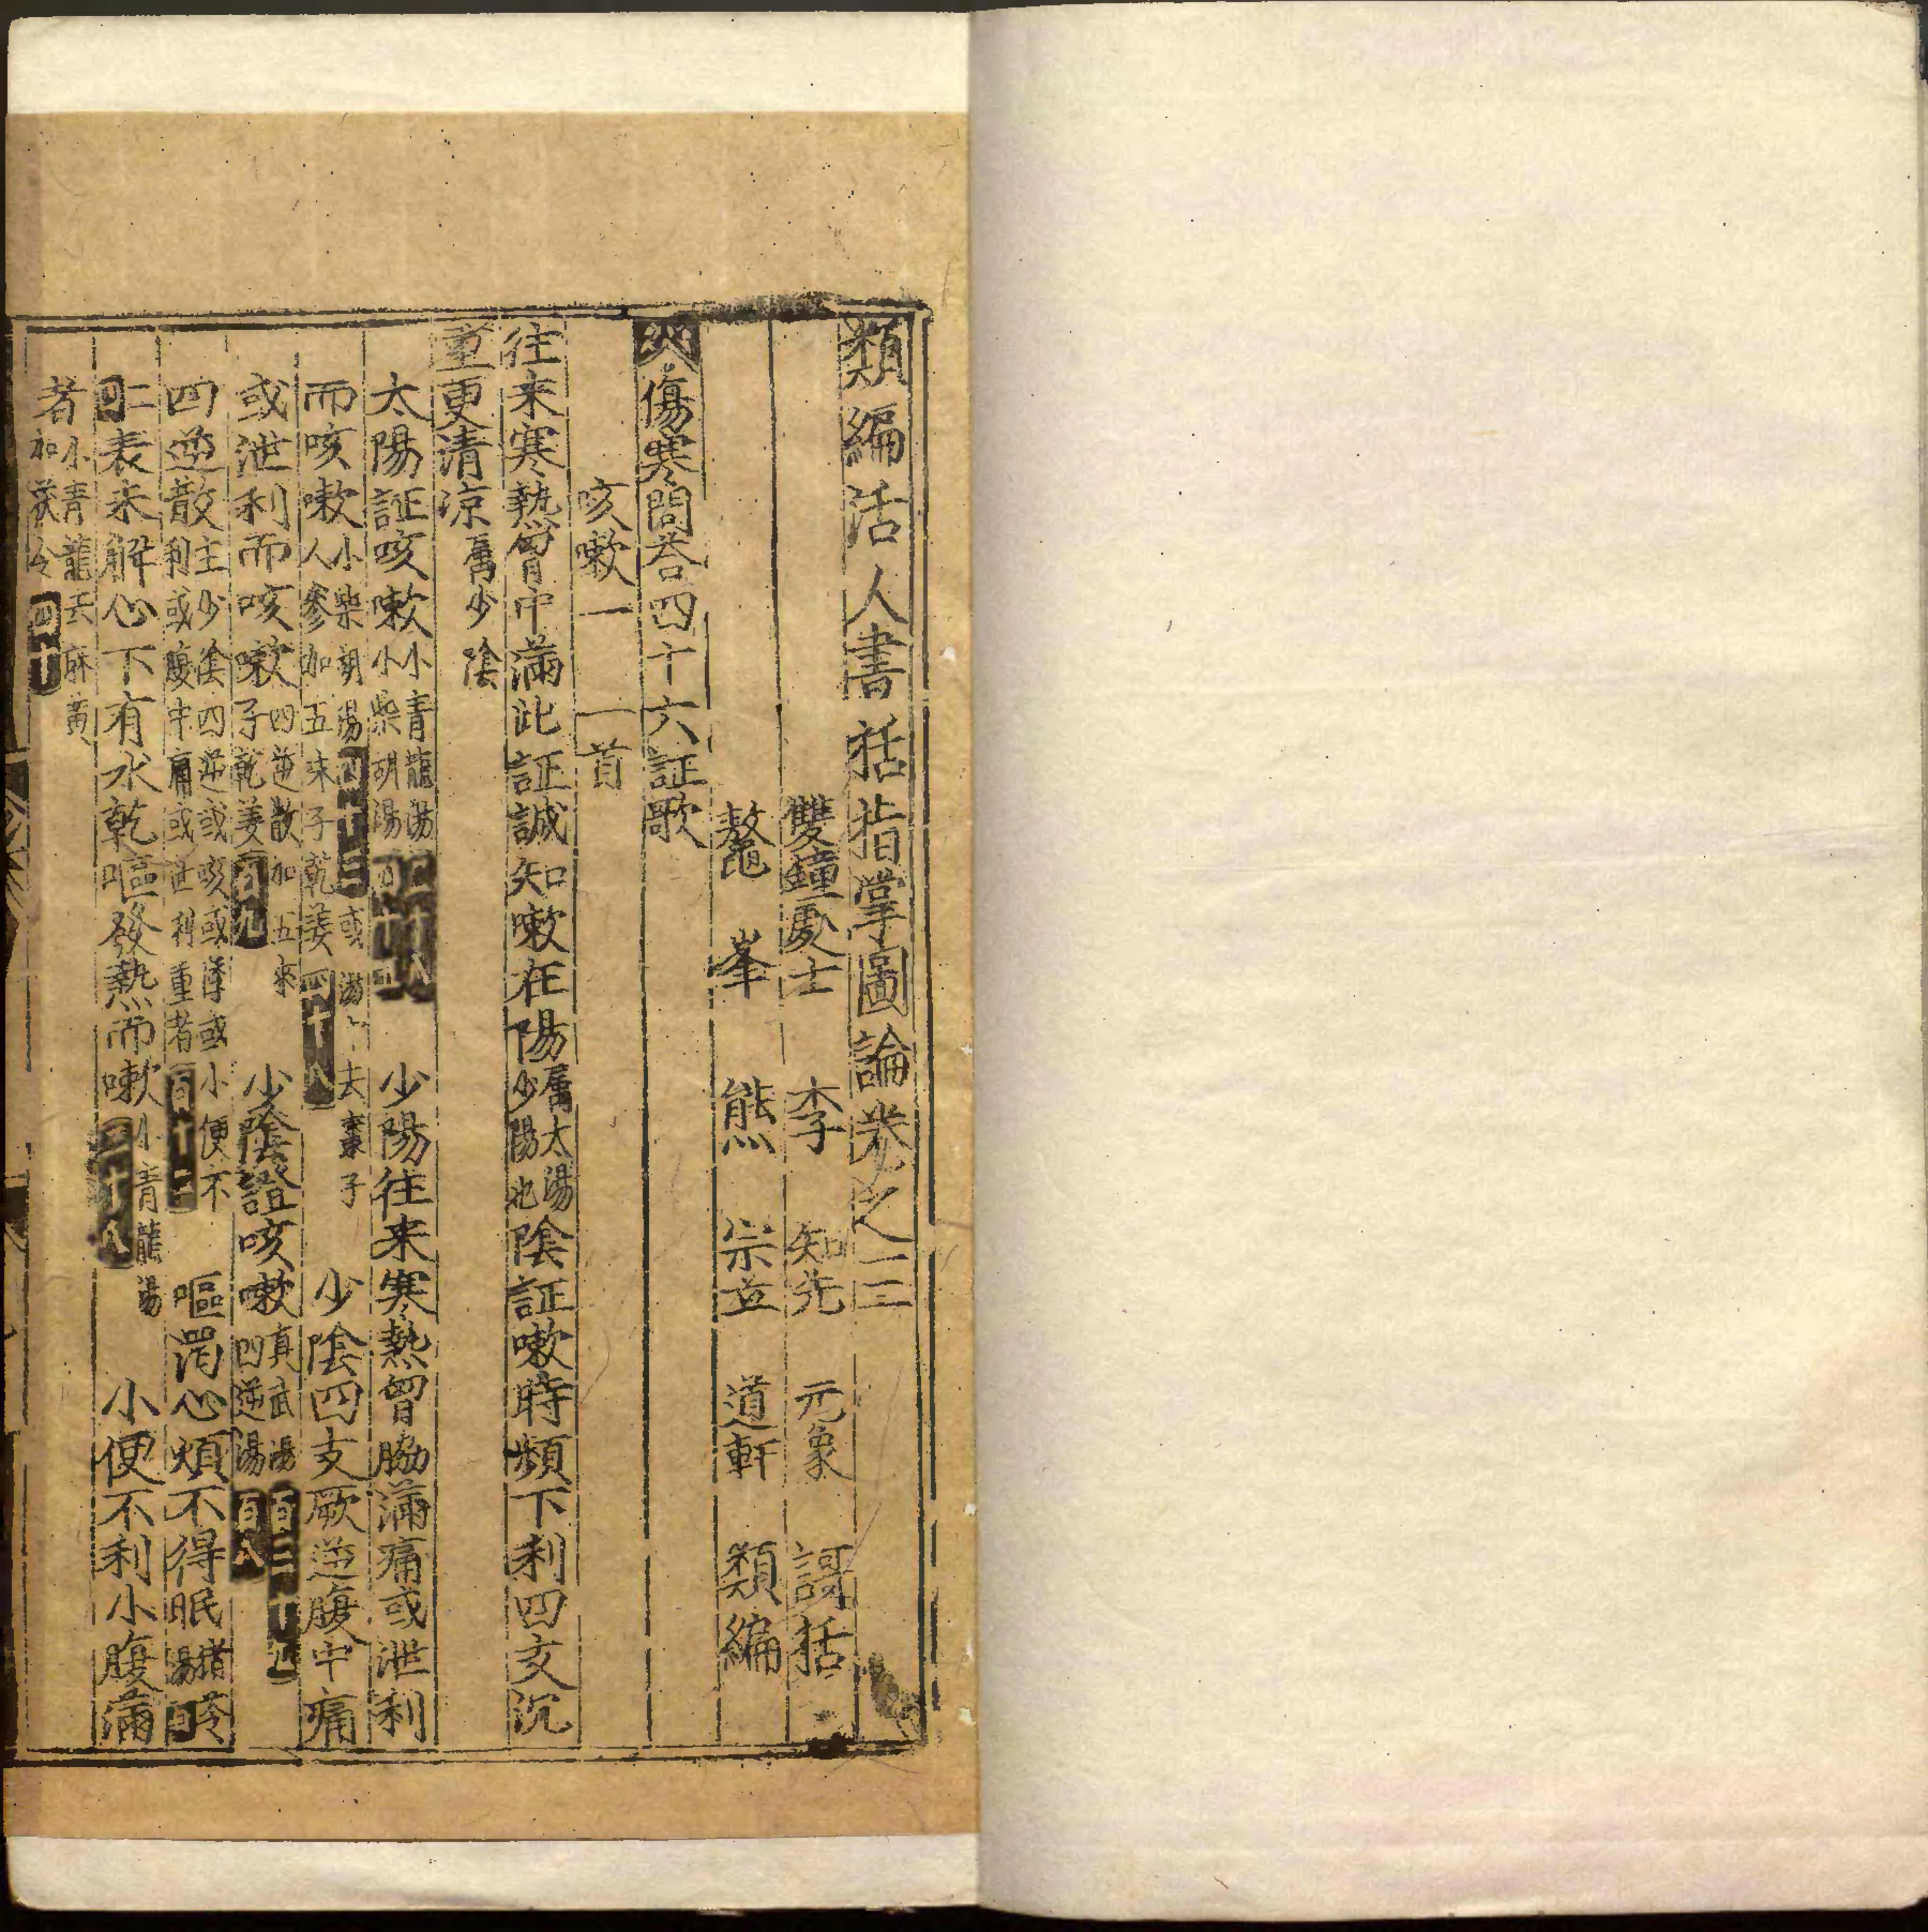 類編活人書括指掌圖論卷之三
雙鐘處士 李 知先 元象 謌括
鰲 峯 熊 宗立 道軒 類編
傷寒問荅四十六証歌
咳嗽一 一首
往来寒熱胷中滿此証誠知嗽在陽属太陽少陽也陰証嗽時頻下利四支沉
重更清凉属少陰
太陽証咳嗽小青龍湯小柴胡湯 少陽往来寒熱胷脇滿痛或泄利
而咳嗽小柴胡湯四十三或湯去棗子人參加五味子乾姜四十八 少陰四支厥逆腹中痛
或泄利而咳嗽四逆散加五味子乾姜百九 少陰證咳嗽真武湯四逆湯百八
四逆散主少陰四逆或咳或悸或小便不利或腹中痛或泄利重者百十二 嘔渴心煩不得眠猪苓湯百
二表未解心下有水乾嘔發熱而嗽小青龍湯 小便不利小腹滿
者小青龍去麻黄加茯令四十